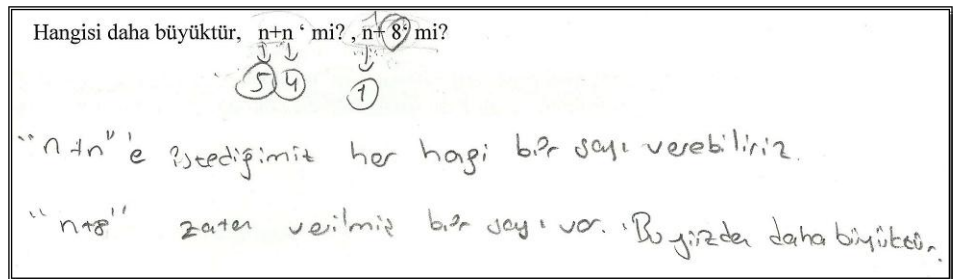 Hangisi daha büyüktür, n+n ‘ mi? , n+ 8‘ mi?
5 4 1
"n+n" 'e istediğimiz her hagi bir sayı verebiliriz.
"n+8" zaten verilmiş bir sayı var. Bu yüzden daha büyüktür.